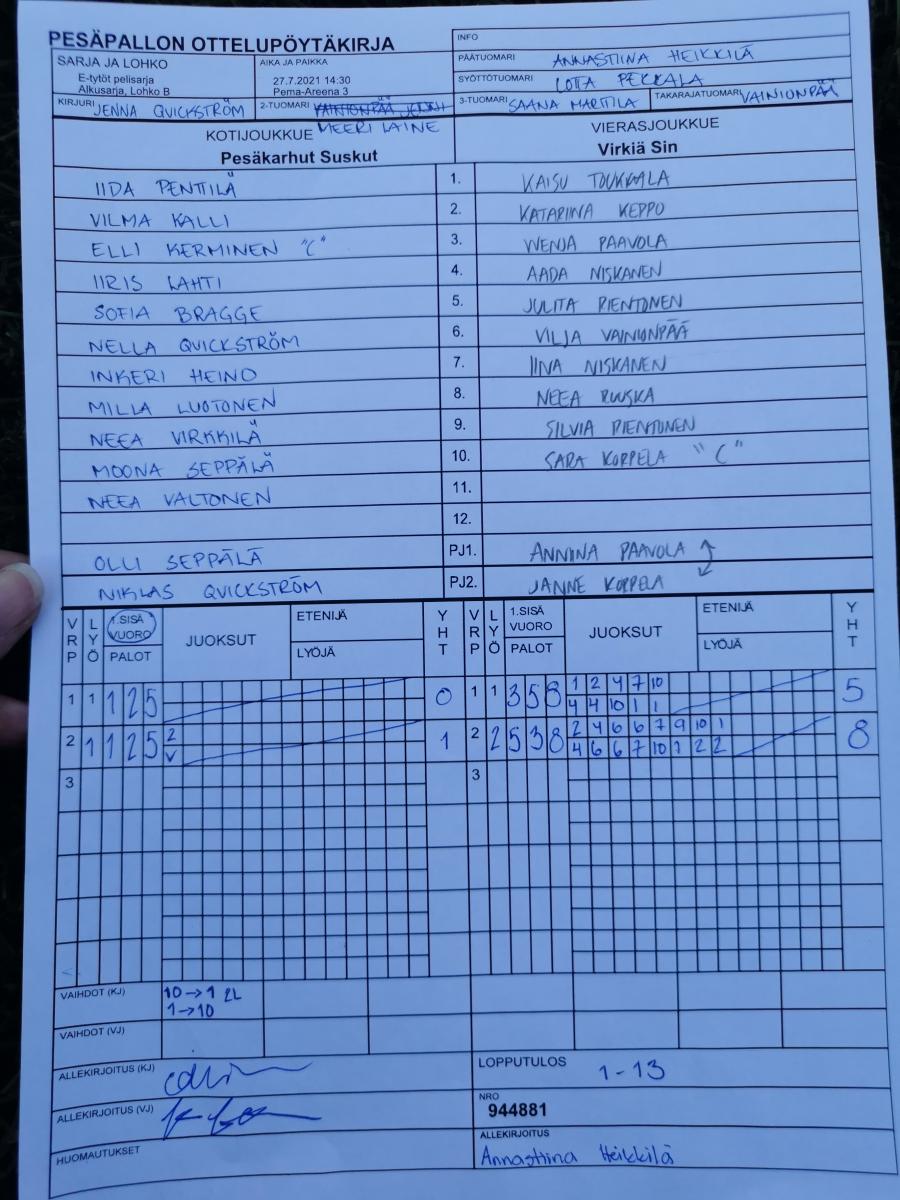 PESÄPALLON OTTELUPÖYTÄKIRJA
INFO
SARJA JA LOHKO
E-tytöt pelisarja
Alkusarja, Lohko B
AIKA JA PAIKKA
27.7.2021 14:30
Pema-Areena 3
PÄÄTUOMARI ANNASTIINA HEIKKILÄ
SYÖTTÖTUOMARI LOTTA PEKKALA
KIRJURI JENNA QUICKSTRÖM
2-TUOMARI
MEERI LAINE
3-TUOMARI SAANA MARTTILA
TAKARAJATUOMARI VAINIONPÄÄ
KOTIJOUKKUE
Pesäkarhut Suskut
VIERASJOUKKUE
Virkiä Sin
IIDA PENTTILÄ 1. KAISU TOUKKALA
VILMA KALLI 2. KATARIINA KEPPO
ELLI KERMINEN "C" 3. WENJA PAAVOLA
IIRIS LAHTI 4. AADA NISKANEN
SOFIA BRAGGE 5. JULITA PIENTONEN
NELLA QUICKSTRÖM 6. VILJA VAINIONPÄÄ
INKERI HEINO 7. IINA NISKANEN
MILLA LUOTONEN 8. NEEA RUUSKA
NEEA VIRKKILÄ 9. SILVIA PIENTONEN
MOONA SEPPÄLÄ 10. SARA KORPELA "C"
NEEA VALTONEN 11.
12.
OLLI SEPPÄLÄ PJ1. ANNINA PAAVOLA
NIKLAS QUICKSTRÖM PJ2. JANNE KORPELA
VRP LYÖ 1.SISÄ VUORO PALOT JUOKSUT ETENIJÄ LYÖJÄ YHT VRP LYÖ 1.SISÄ VUORO PALOT JUOKSUT ETENIJÄ LYÖJÄ YHT
1 1 1 2 5 0 1 1 3 5 8 1 2 4 7 10 5
4 4 10 1 1
2 1 1 2 5 2 1 2 2 5 3 8 2 4 6 6 7 9 10 1 8
V 4 6 6 7 10 1 2 2
3 3
VAIHDOT (KJ) 10→1 2L
1→10
VAIHDOT (VJ)
ALLEKIRJOITUS (KJ)
LOPPUTULOS 1-13
ALLEKIRJOITUS (VJ)
NRO
944881
HUOMAUTUKSET
ALLEKIRJOITUS
Annastiina Heikkilä